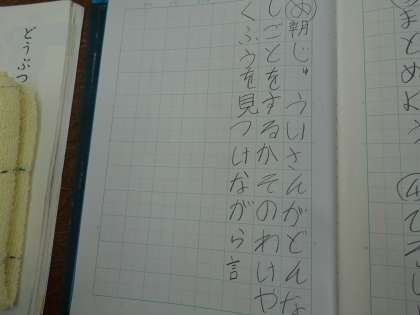 まとめよう
め 朝じゅういさんがどんな
しごとをするかそのわけや
くふうを見つけながら言
どうぶつ